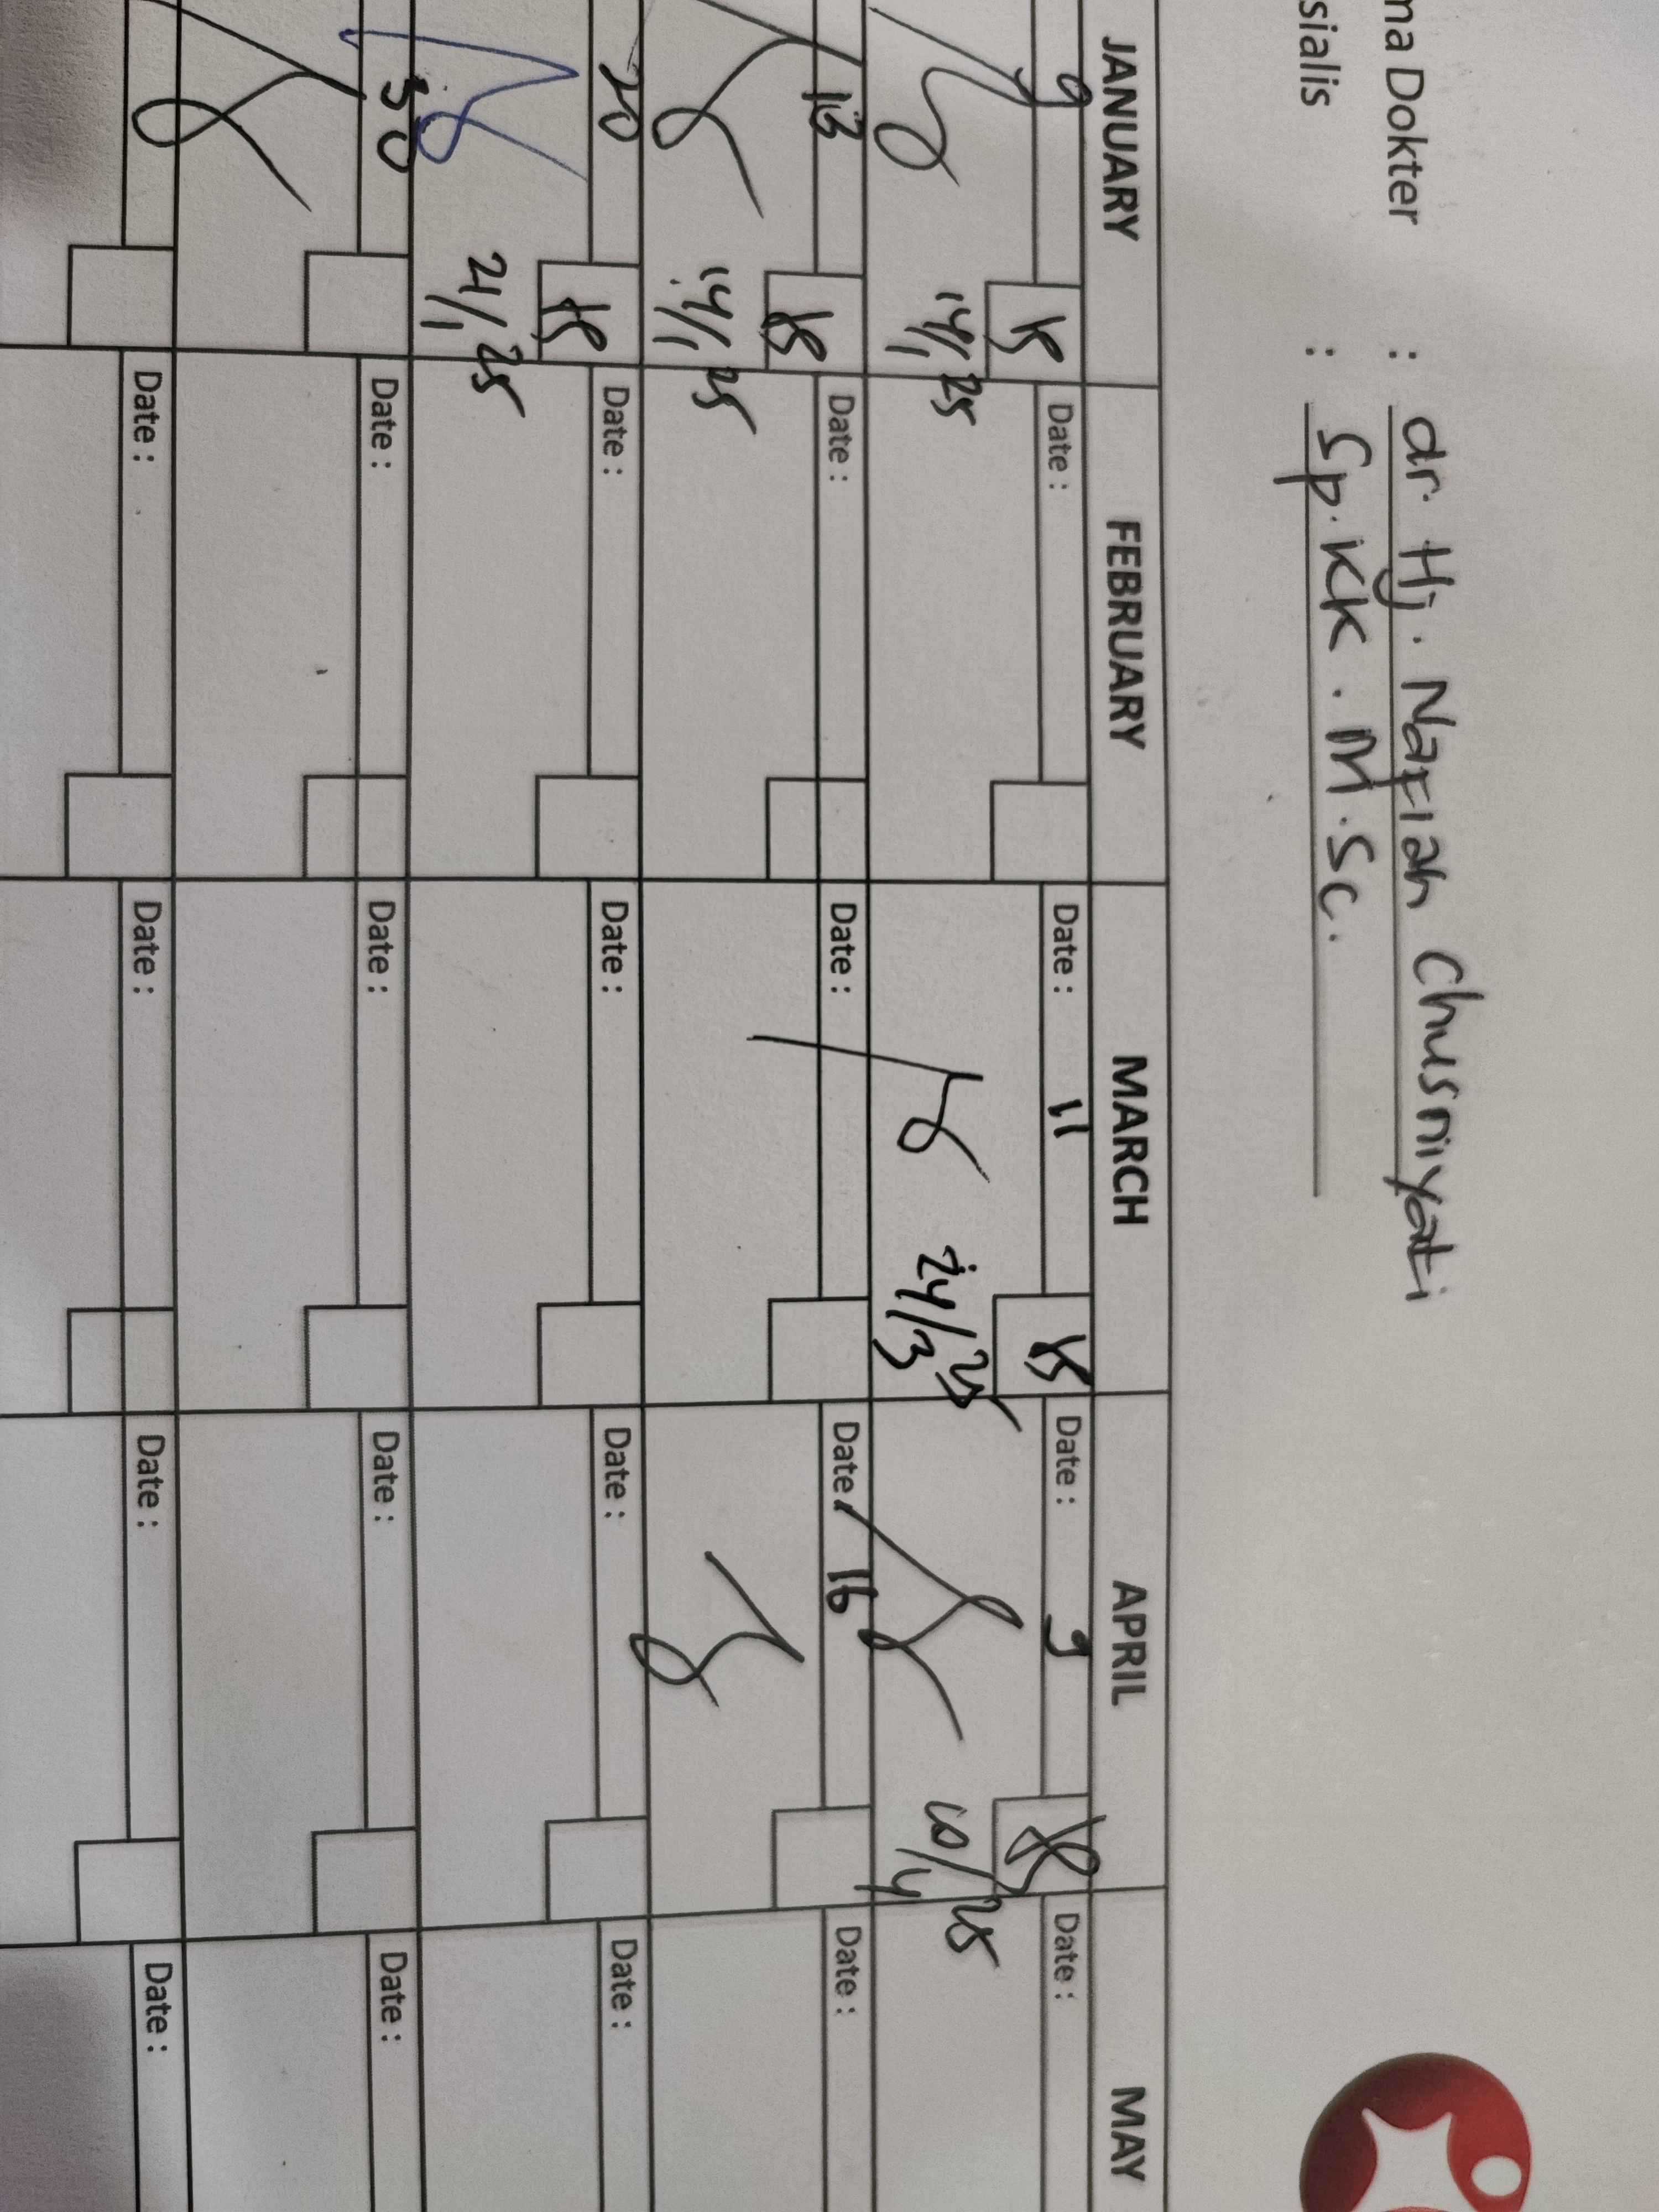 ma Dokter : dr. Hj. Nafiah Chusniyati
sialis : Sp.KK. M.Sc.
JANUARY FEBRUARY MARCH APRIL MAY
9 Date : Date : 11 Date : 9 Date :
14/1 25 24/3 25 10/4 25
13 Date : Date : Date 16 Date :
14/1 25
20 Date : Date : Date : Date :
21/1 25
30 Date : Date : Date : Date :
Date : Date : Date : Date :